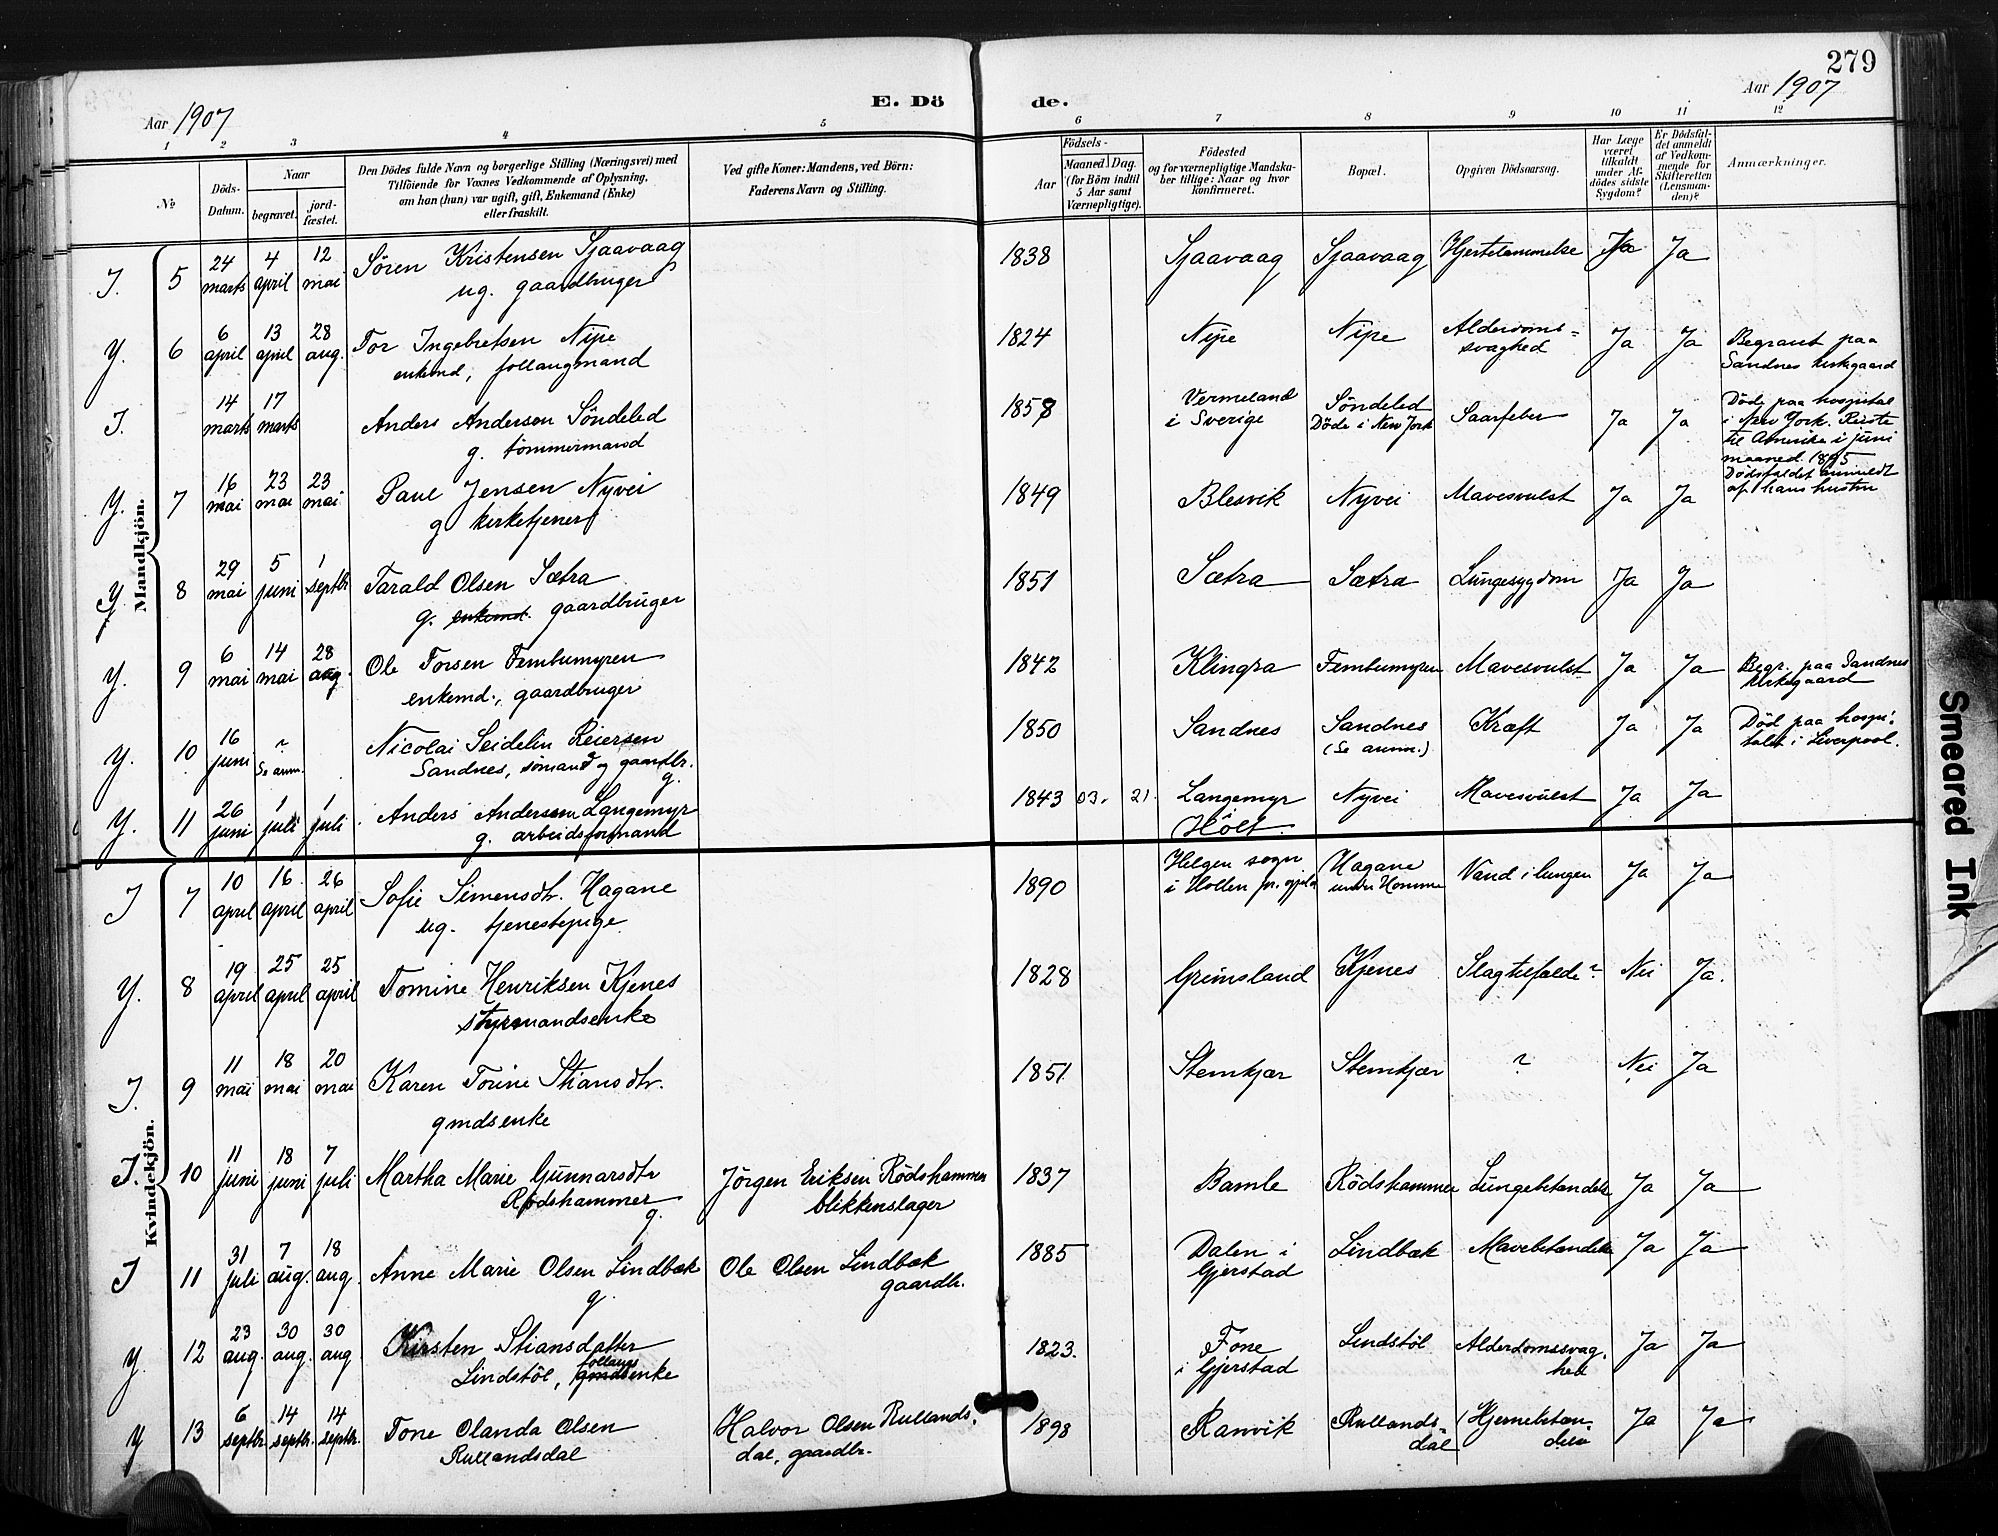 279
Aar 1907
E. Dö
de.
Aar 1907
1 2 3 4 5 6 7 8 9 10 11 12
№
Döds-
Datum.
Naar
begravet.
jord-
fæstet.
Den Dödes fulde Navn og borgerlige Stilling (Næringsvei) med
Tilföiende for Voxnes Vedkommende af Oplysning,
om han (hun) var ugift, gift, Enkemand (Enke)
eller fraskilt.
Ved gifte Koner: Mandens, ved Börn:
Faderens Navn og Stilling.
Födsels-
Aar
Maaned. Dag.
(for Börn indtil
5 Aar samt
Værnepligtige).
Födested
og for værnepligtige Mandska-
ber tillige: Naar og hvor
konfirmeret.
Bopæl.
Opgiven Dödsaarsag.
Har Læge
været
tilkaldt
under Af-
dödes sidste
Sygdom?
Er Dödsfal-
det anmeldt
af Vedkom-
mende for
Skifteretten
(Lensman-
den)?
Anmærkninger.
Mandkjön.
I. 5 24 marts 4 april 12 mai Sören Kristensen Sjaavaag 1838 Sjaavaag Sjaavaag Hjertelammelse Ja Ja
ug. gaardbruger
Y. 6 6 april 13 april 28 aug. Tor Ingebretsen Nipe 1824 Nipe Nipe Alderdoms- Ja Ja Begravet paa
enkemd, follaugmand svaghed Sandnes kirkegaard
I. 14 marts 17 marts Anders Andersen Söndeled 1858 Vermeland Söndeled Saarfeber Ja Ja Död paa hospital
g. tömmermand i Sverige Döde i New York i New York. Reiste
til Amerika i juni
maaned 1895
Dödsfaldet anmeldt
af hans hustru
Y. 7 16 mai 23 mai 23 mai Paul Jensen Nyvei 1849 Blesvik Nyvei Mavesvulst Ja Ja
g kirketjener
Y 8 29 mai 5 juni 1 septbr Tarald Olsen Sætra 1851 Sætra Sætra Lungesygdom Ja Ja
g. enkemd. gaardbruger
Y. 9 6 mai 14 mai 28 aug. Ole Torsen Fembumyren 1842 Klingra Fembumyren Mavesvulst Ja Ja Begr. paa Sandnes
enkemd., gaardbruger kirkegaard
Y. 10 16 juni ? Se anm. Nicolai Seidelin Reiersen 1850 Sandnes Sandnes Kræft Ja Ja Död paa hospi-
Sandnes, sömand og gaardbr. (Se anm.) talet i Liverpool.
g.
Y. 11 26 juni 1 juli 1 juli Anders Anderssen Langemyr 1843 03. 21. Langemyr Nyvei Mavesvulst Ja Ja
g. arbeidsformand Holt.
Kvindekjön.
I 7 10 april 16 april 26 april Sofie Simensdtr. Hagane 1890 Helgen sogn Hagane Vand i lungen Ja Ja
ug. tjenestepige i Hollen pr.gjeld under Homme
Y. 8 19 april 25 april 25 april Tomine Henriksen Kjenes 1828 Grimsland Kjenes Slagtilfælde? Nei Ja.
styrmandsenke
I. 9 11 mai 18 mai 20 mai Karen Torine Stiansdtr. 1851 Stemkjær Stemkjær ? Nei Ja
gmdsenke
I. 10 11 juni 18 juni 7 juli Martha Marie Gunnarsdtr Jörgen Eriksen Rödshammer 1837 Bamle Rödshammer Lungebetændelse Ja Ja
Rödshammer blikkenslager
g.
I 11 31 juli 7 aug. 18 aug. Anne Marie Olsen Lindbæk Ole Olsen Lindbæk 1885 Dalen i Lindbæk Mavebetændelse Ja Ja
g. gaardbr. Gjerstad
Y 12 23 aug. 30 aug. 30 aug Kirsten Stiansdatter 1823. Fone Lindstöl Alderdomssvag- Ja Ja
Lindstöl, follaugs gmdsenke i Gjerstad hed
Y 13 6 septbr 14 septbr. 14 septbr Tone Olanda Olsen Halvor Olsen Rullands- 1898 Ranvik Rullands- Hjernebetæn- Ja Ja
Rullandsdal dal, gaardbr. dal delse
Smeared Ink